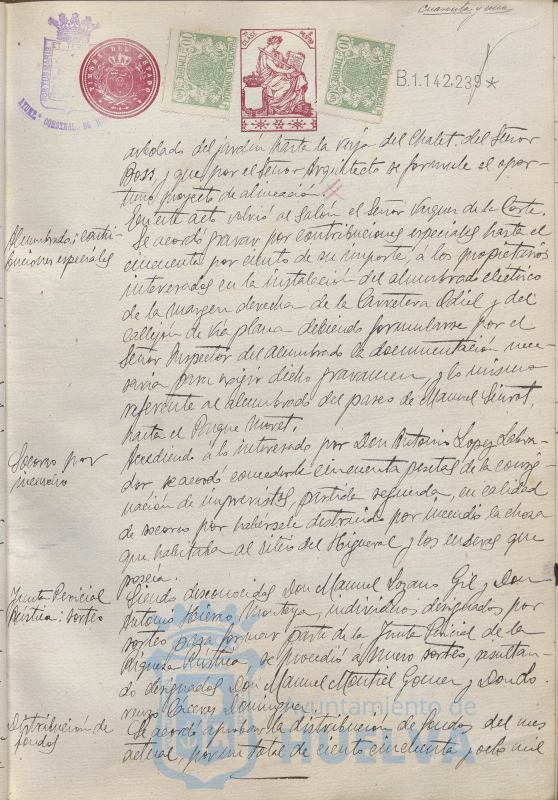 Cuarenta y una
TIMBRE DEL ESTADO
B.1.142.239 *
arbolado del jardín hasta la verja del Chalet del Señor
Boss, y que por el Señor Arquitecto se formule el opor-
tuno proyecto de alineación.
En este acto volvió al Salón el Señor Vazquez de la Corte.
Alumbrado: contri-
buciones especiales
Se acordó gravar por contribuciones especiales hasta el
cincuenta por ciento de su importe, a los propietarios
interesados en la instalación del alumbrado eléctrico
de la margen derecha de la Carretera Odiel y del
callejón de Via plana debiendo formularse por el
Señor Inspector del alumbrado la documentación nece-
saria para exigir dicho gravamen, y lo mismo
referente al alumbrado del paseo de Manuel Siurot,
hasta el Parque Moret.
Socorro por
incendio
Accediendo a lo interesado por Don Antonio Lopez Labra-
dor se acordó concederle cincuenta pesetas de la consig-
nación de imprevistos, partida segunda, en calidad
de socorro por habersele destruido por incendio la choza
que habitaba al sitio del Higueral y los enseres que
poseía.
Junta Pericial
Rústica: sorteo
Siendo desconocidos Don Manuel Lozano Gil y Don
Antonio Hierro Montoya, individuos designados por
sorteo para formar parte de la Junta Pericial de la
Riqueza Rústica, se procedió á nuevo sorteo, resultan-
do designados Don Manuel Montiel Gomez y Don Lo-
renzo Cáceres Dominguez.
Distribución de
fondos
Se acordó aprobar la distribución de fondos del mes
actual, por un total de ciento cincuenta y ocho mil
Ayuntamiento de
HUELVA